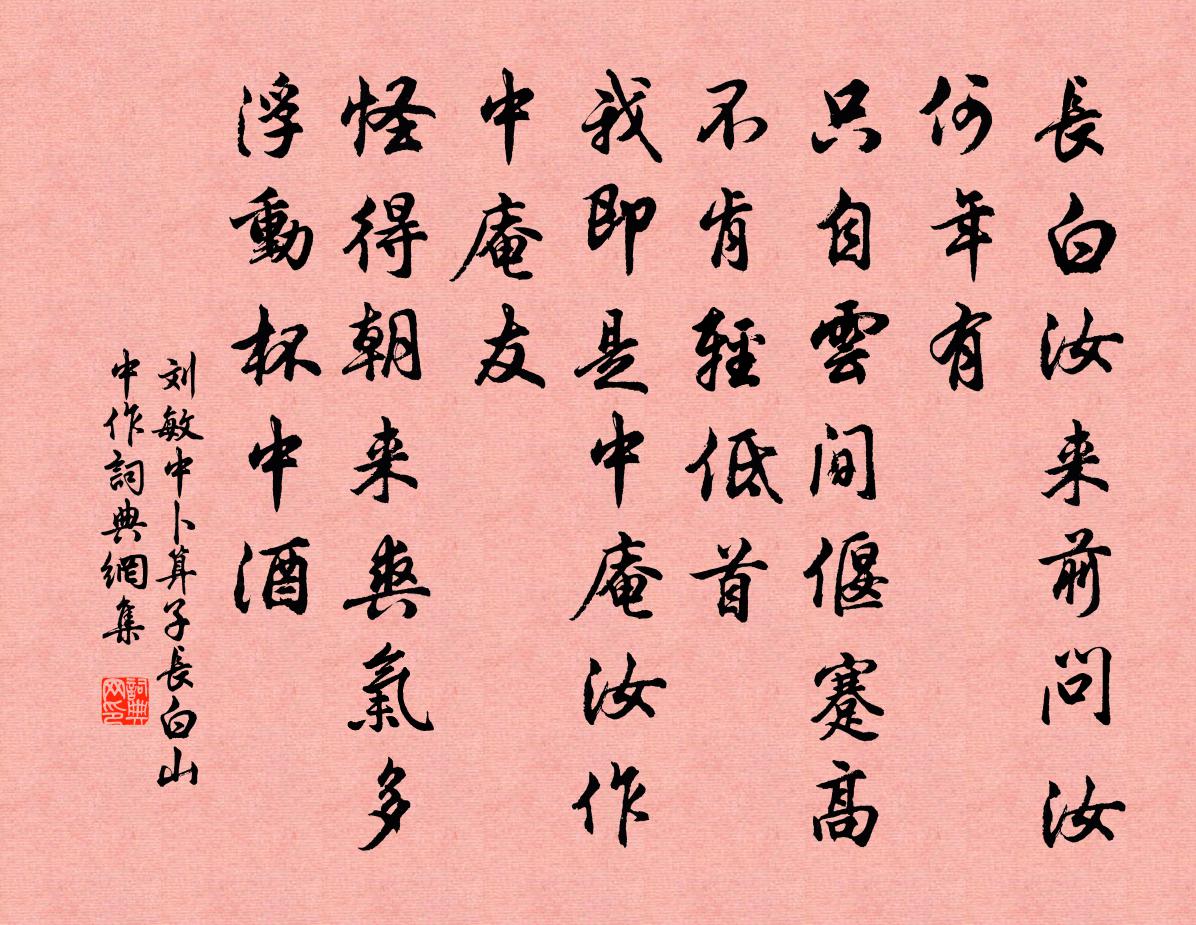 長白汝来前問汝
何年有
只自雲間偃蹇高
不肯輕低首
我即是中庵汝作
中庵友
怪得朝来爽氣多
浮動杯中酒
刘敏中卜算子長白山
中作詞典網集
詞典
网印